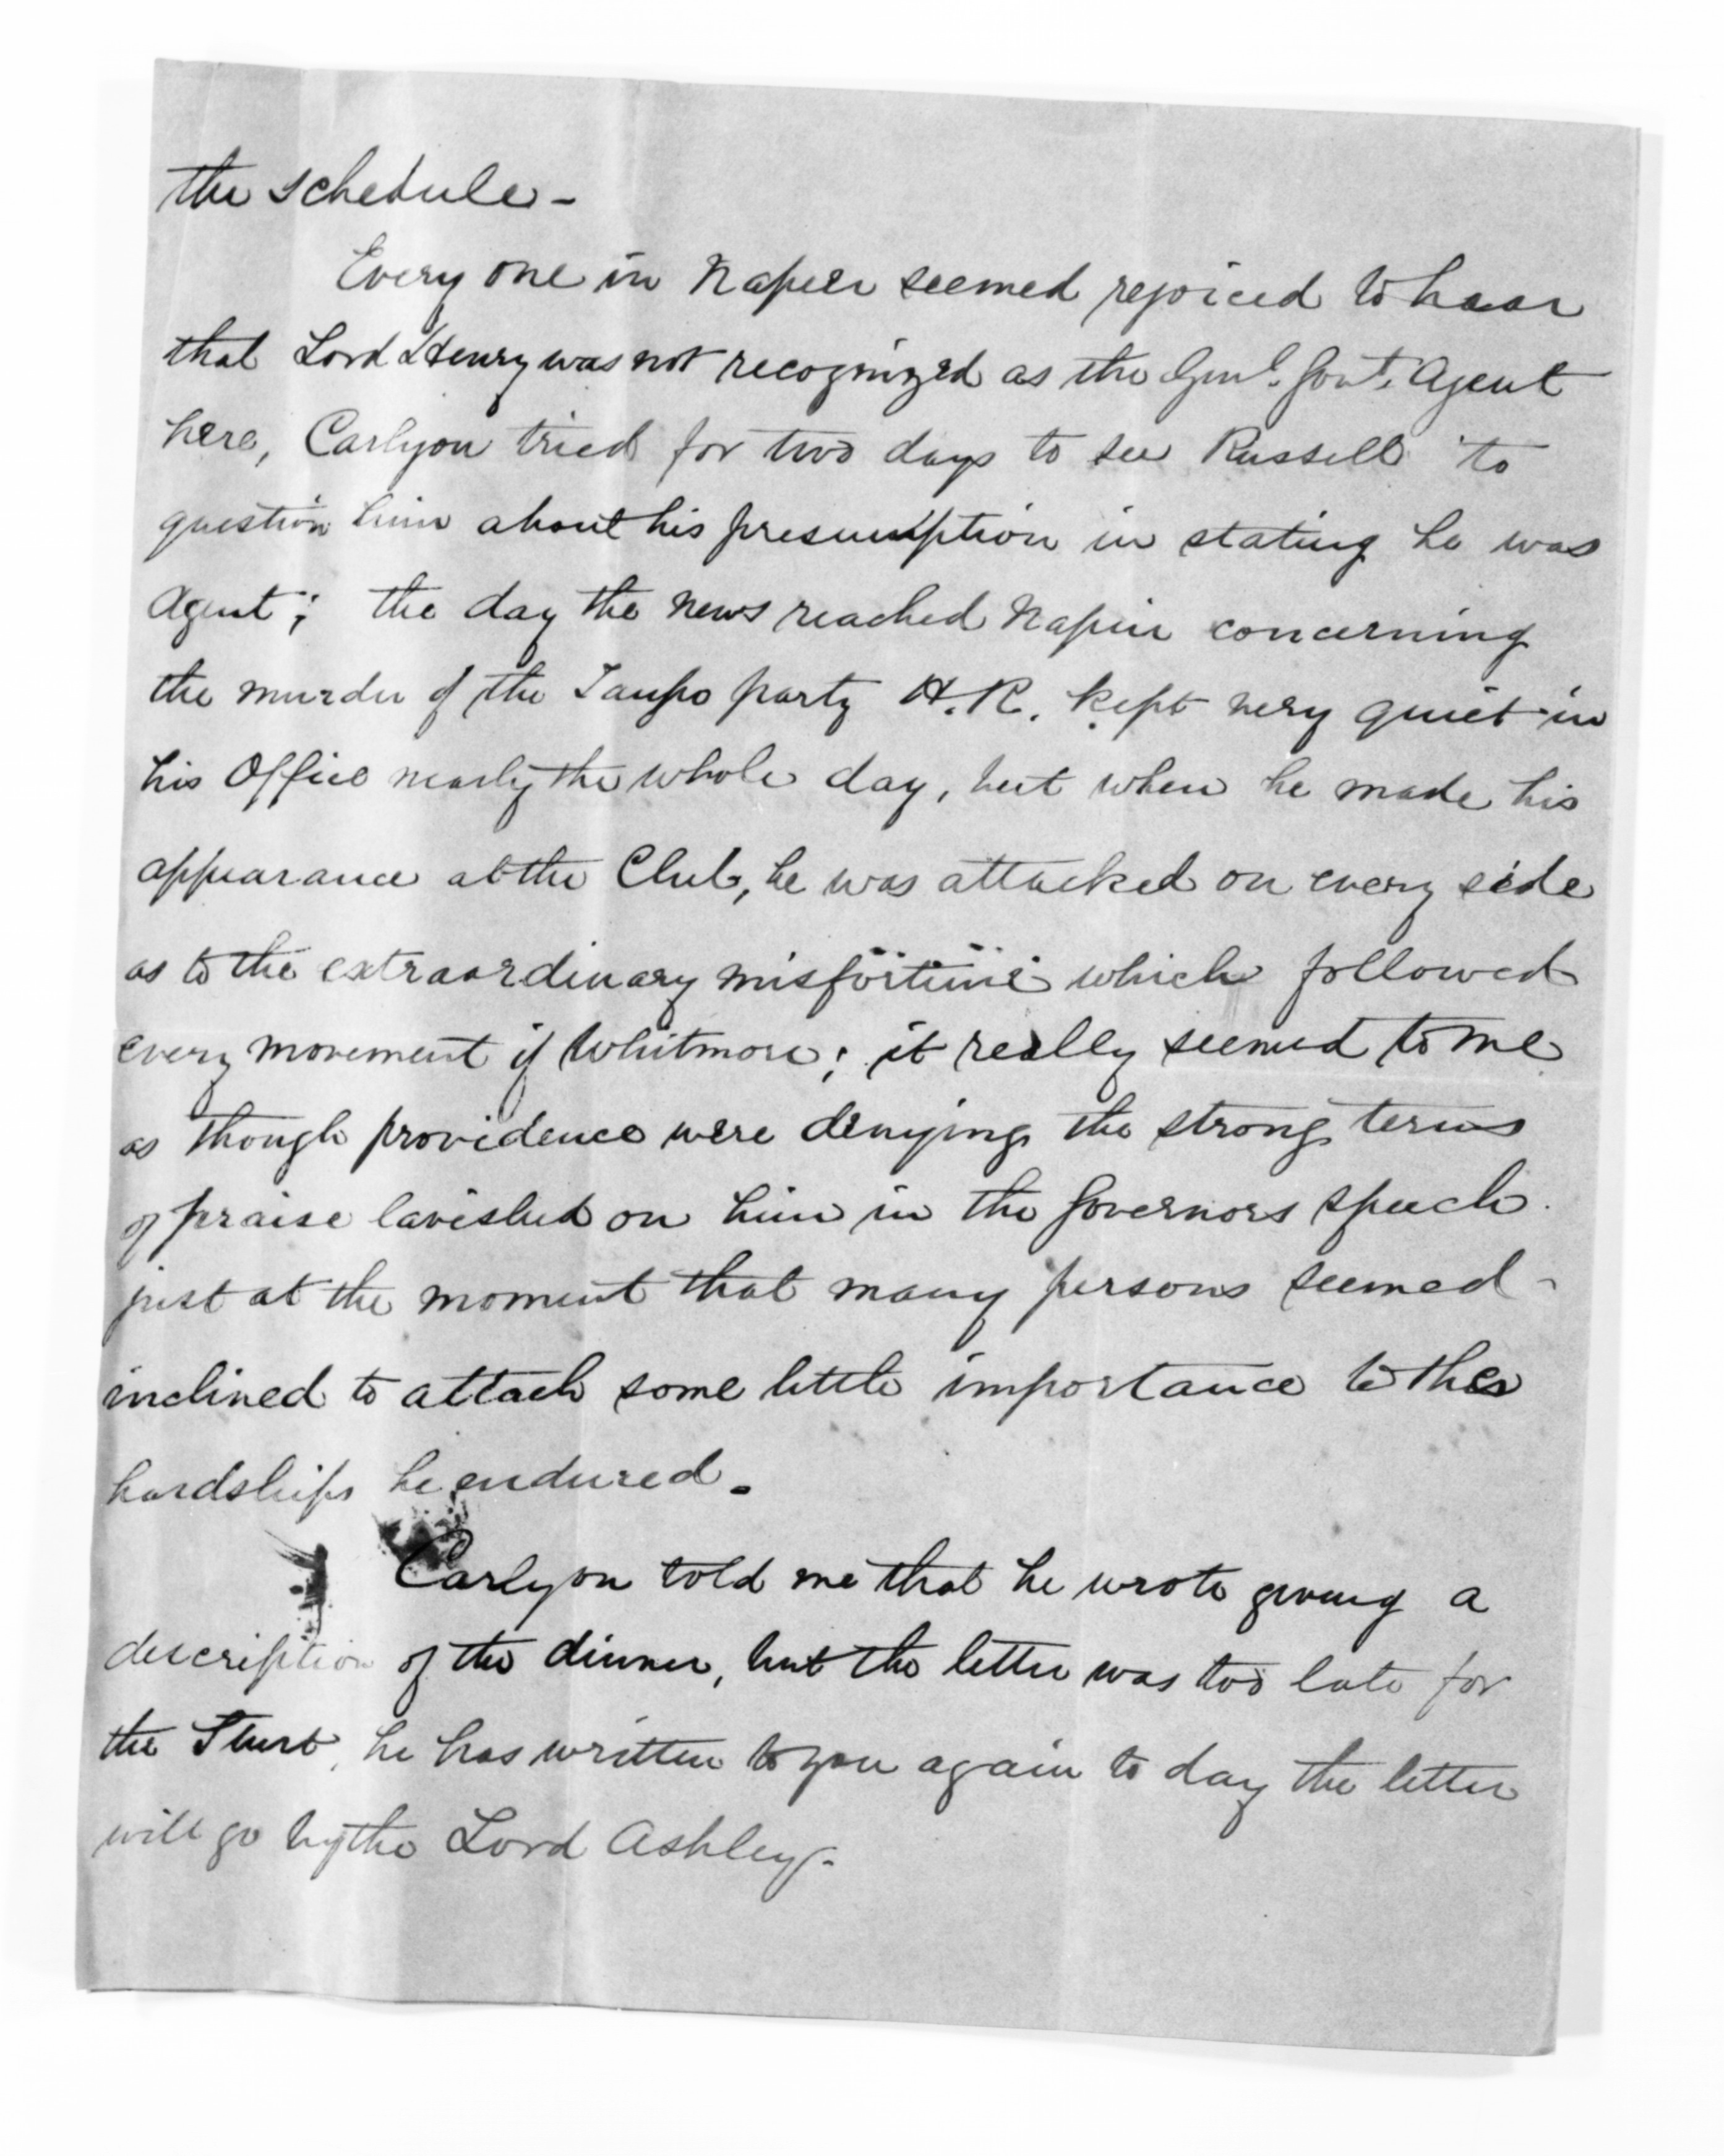 the schedule -
Every one in Napier seemed rejoiced to hear
that Lord Henry was not recognized as the Genl. Govt. Agent
here, Carlyon tried for two days to see Russell to
question him about his presumption in stating he was
Agent; the day the news reached Napier concerning
the murder of the Taupo party H.R. kept very quiet in
his Office nearly the whole day, but when he made his
appearance at the Club, he was attacked on every side
as to the extraordinary misfortune which followed
every movement of Whitmore; it really seemed to me
as though providence were denying the strong terms
of praise lavished on him in the Governors speech
just at the moment that many persons seemed -
inclined to attach some little importance to the
hardships he endured.
Carlyon told me that he wrote giving a
description of the dinner, but the letter was too late for
the Sturt, he has written to you again to day the letter
will go by the Lord Ashley -